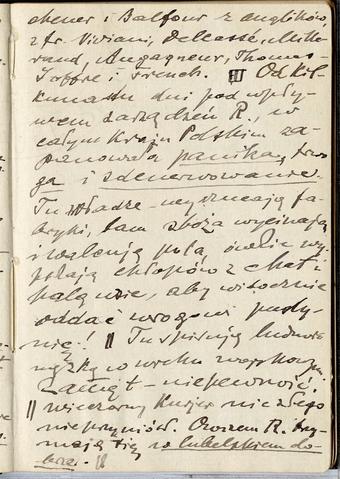 chener i Balfour z anglików,
z fr. Viviani, Delcassé, Mille-
rand, Augagneur, Thomas,
Joffre i French. || Od kil-
kunastu dni pod wpły-
wem zarządzeń R., w
całym Kraju Polskim za-
panowała panika, trwo-
ga i zdenerwowanie.
Tu władze wyrzucają fa-
bryki, tam zboża wycinają
i pola, ówdzie wy-
pędzają chłopów z chat i
palą wsie, aby widocznie
oddać wrogowi pusty-
nię! || Tu spisują ludność
męzką w wieku wojskowym
Zamęt – niepewność.
|| wieczorny Kurjer nic złego
nie przyniósł. Owszem R. trzy-
mają się w lubelskiem do-
brze. ||